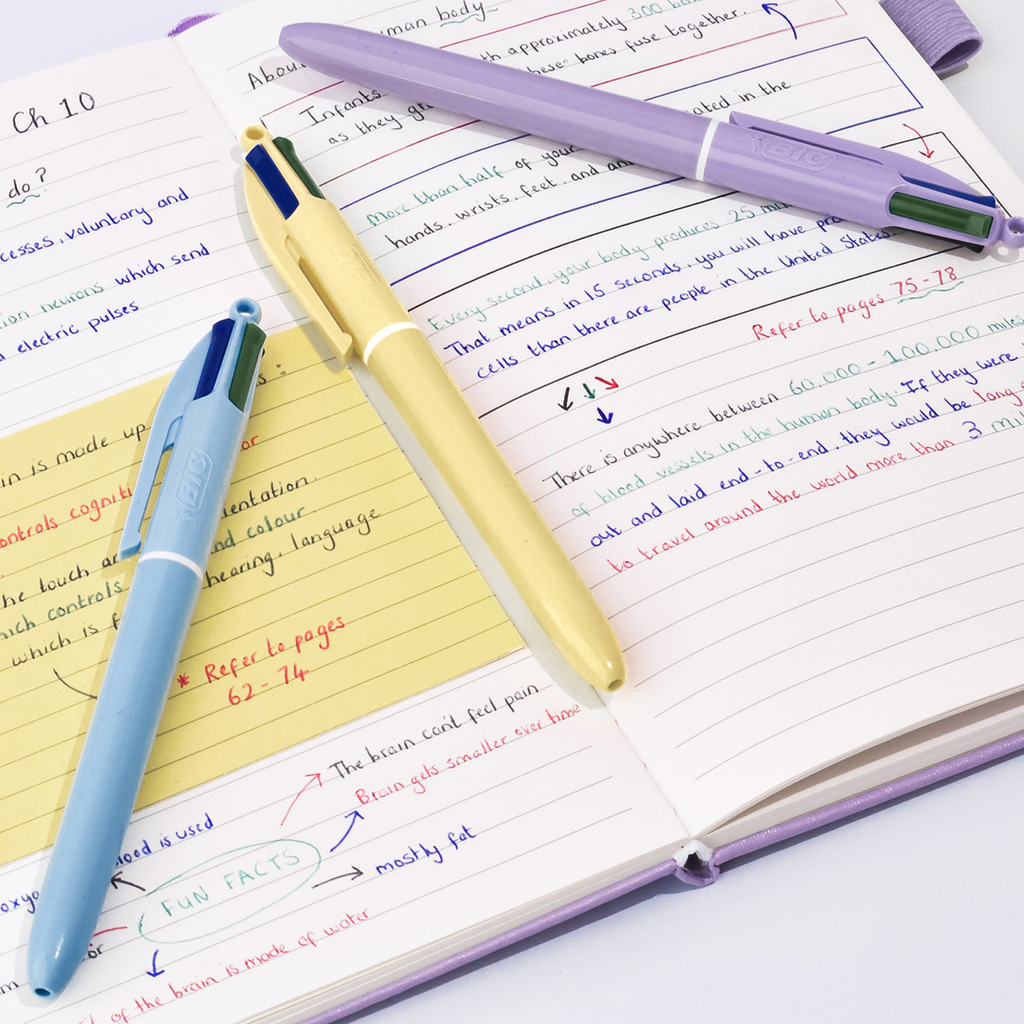 Ch 10
do?
cesses, voluntary and
ion neurons which send
electric pulses
s:
in is made up
or
ontrols cogniti
entation.
he touch a nd colour.
hich controls hearing, language
which is f
* Refer to pages
62 - 74
The brain can't feel pain
Brain gets smaller over time
lood is used
mostly fat
FUN FACTS
oxyg
or
m
of the brain is made of water
uman body
Abou th approximately 300 bon
Infants hese bones fuse together.
as they gr
More than half of your ated in the
hands, wrists, feet, and an
Every second, your body produces 25 mil
That means in 15 seconds, you will have pro
cells than there are people in the United States.
Refer to pages 75 - 78
There is anywhere between 60,000 - 100,000 miles
of blood vessels in the human body. If they were
out and laid end-to-end, they would be long
to travel around the world more than 3
BIC
BIC
BIC